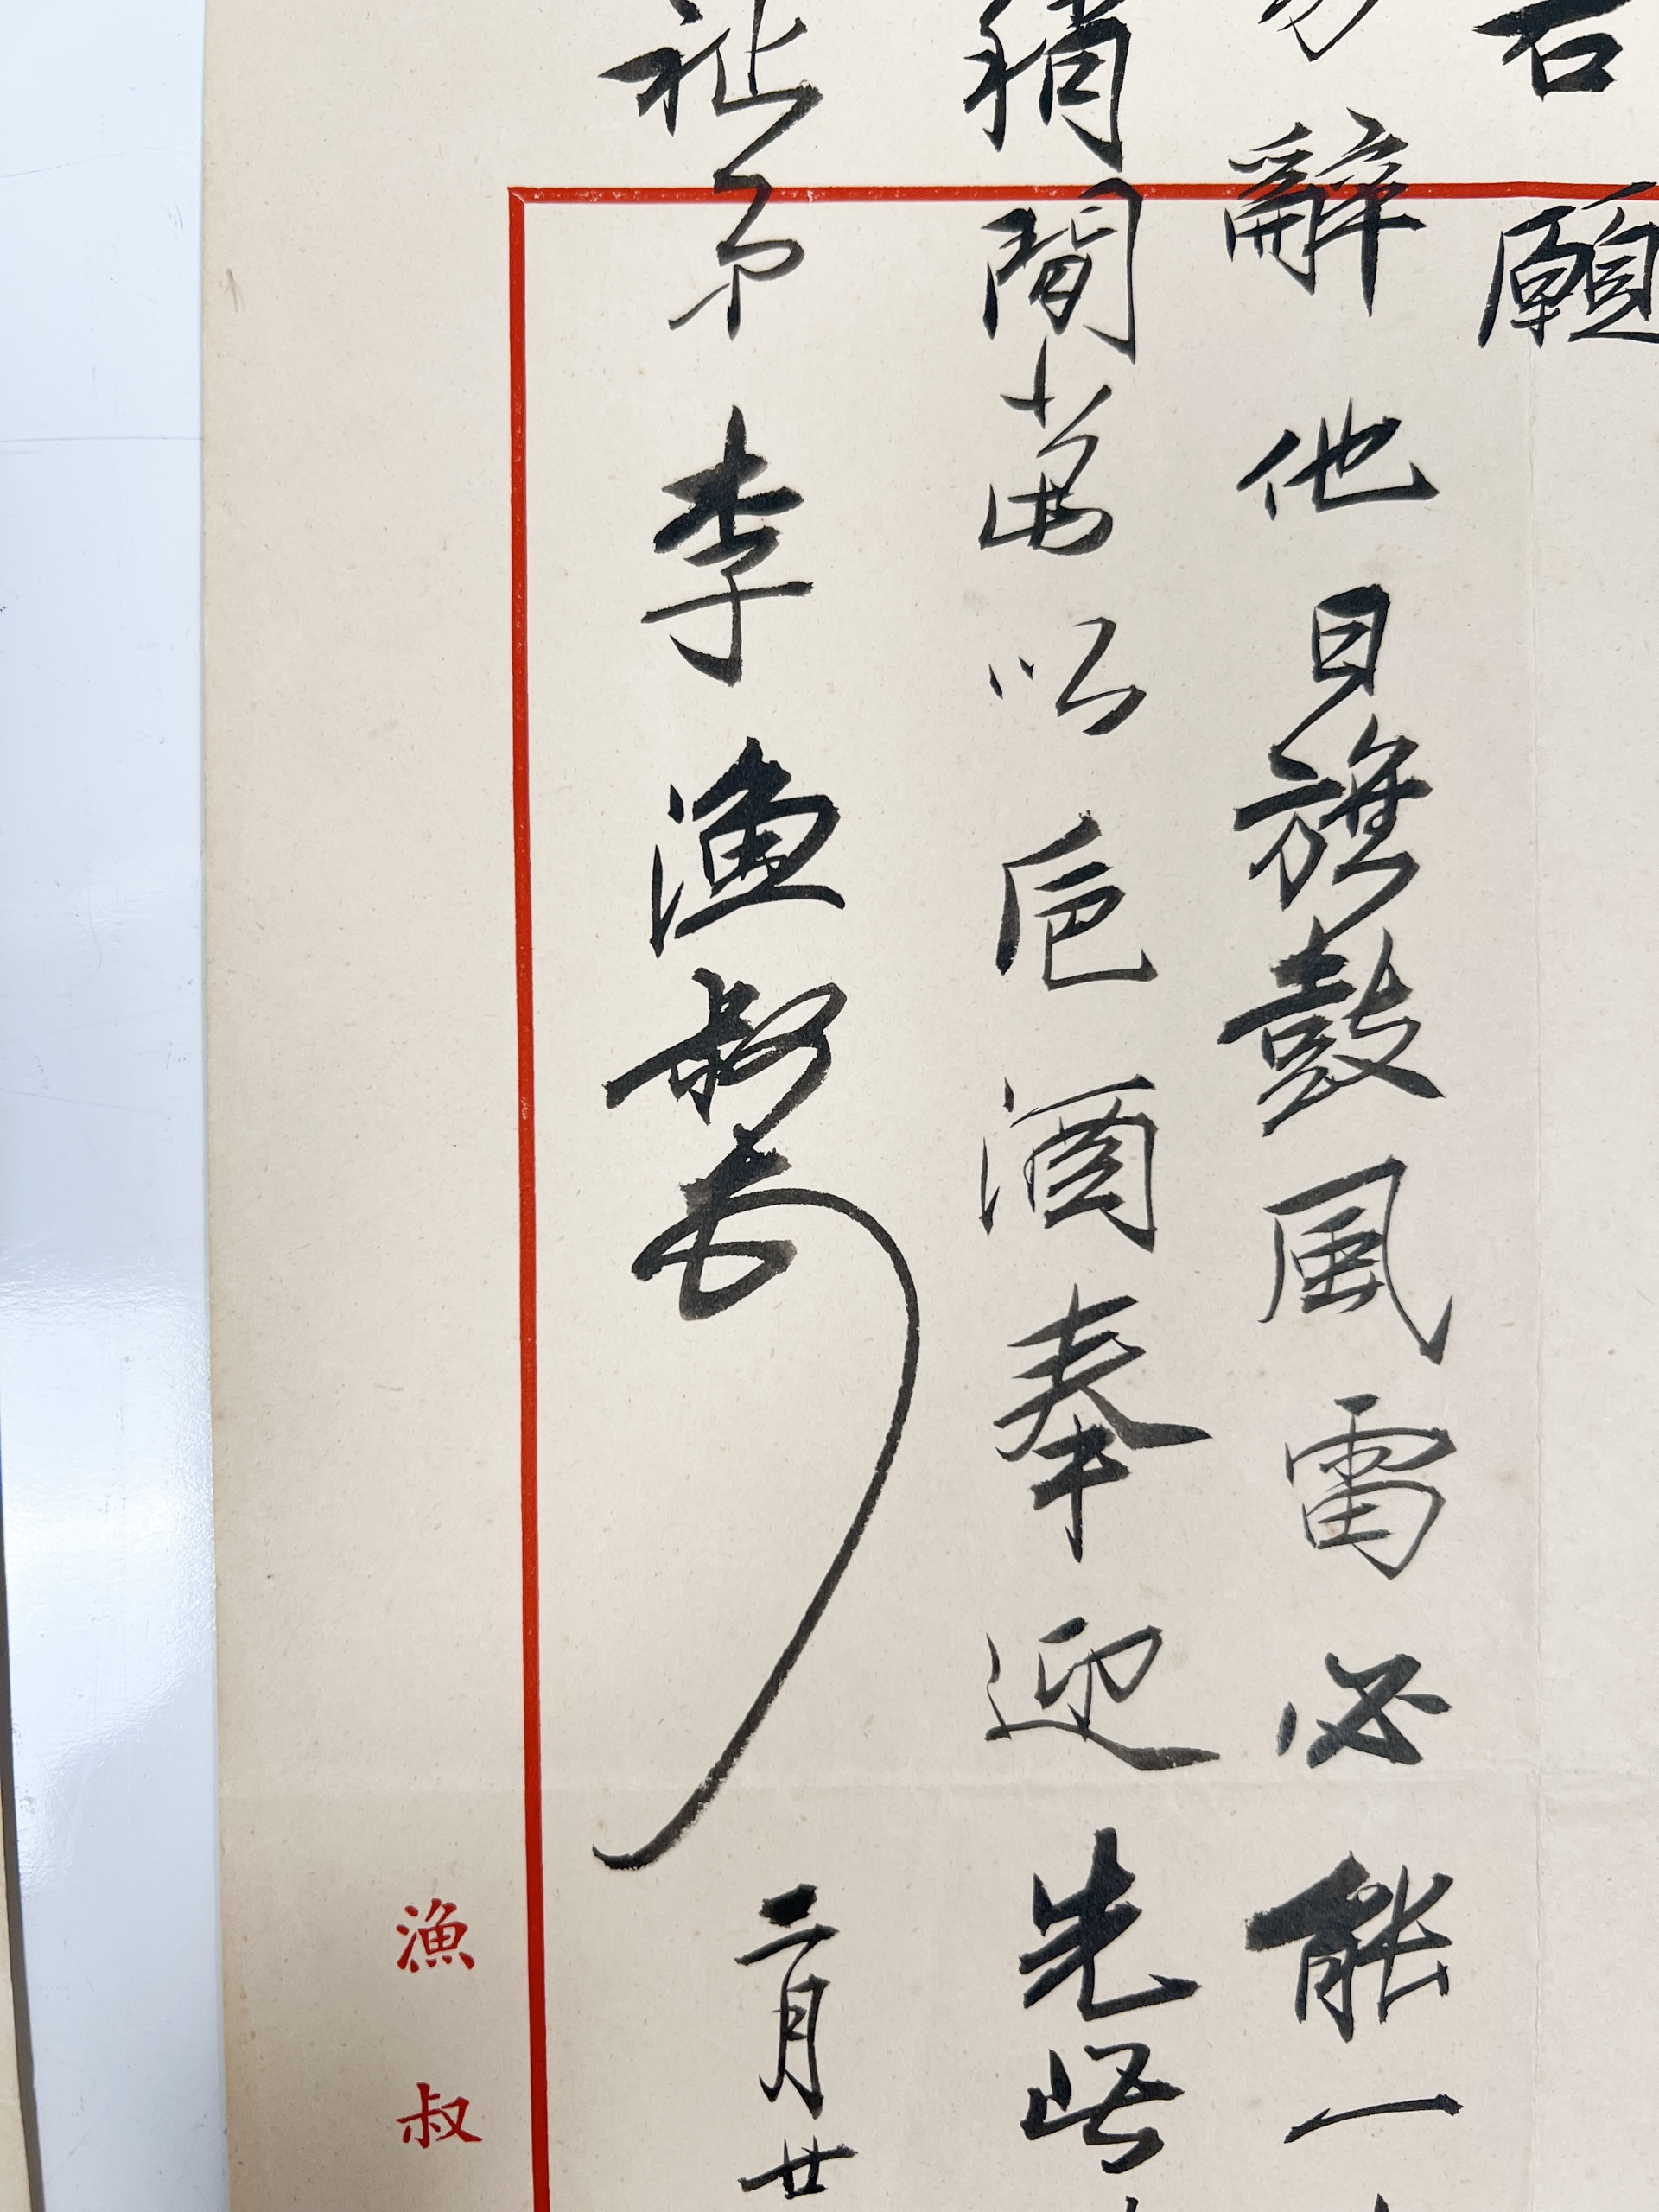 石願
辭他日旗鼓風雷必能一
稍閒當以卮酒奉迎先此
祉弟李漁叔 二月廿
漁叔